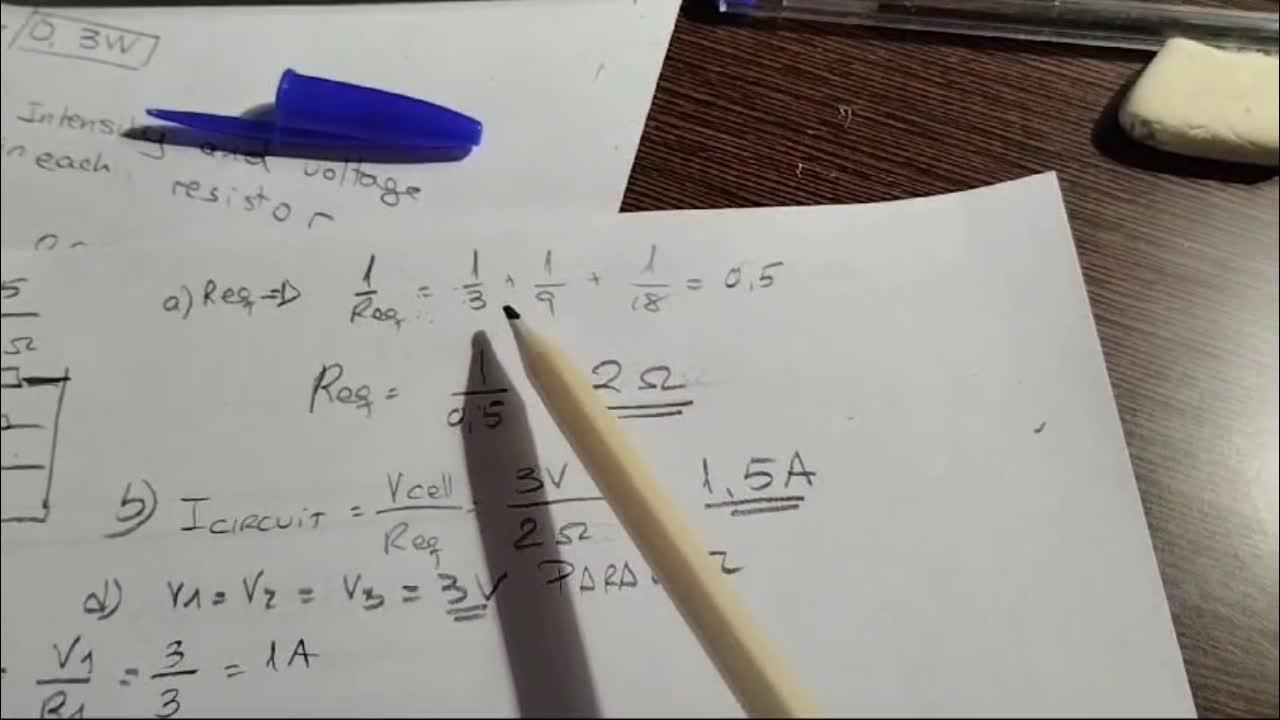 0,3W
Intensity and voltage
in each resistor
5
Ω
a) Req => 1/Req = 1/3 + 1/9 + 1/18 = 0,5
Req = 1/0,5 2Ω
b) ICIRCUIT = Vcell/Req 3V/2Ω 1,5A
d) V1 = V2 = V3 = 3V
V1/R1 = 3/3 = 1A